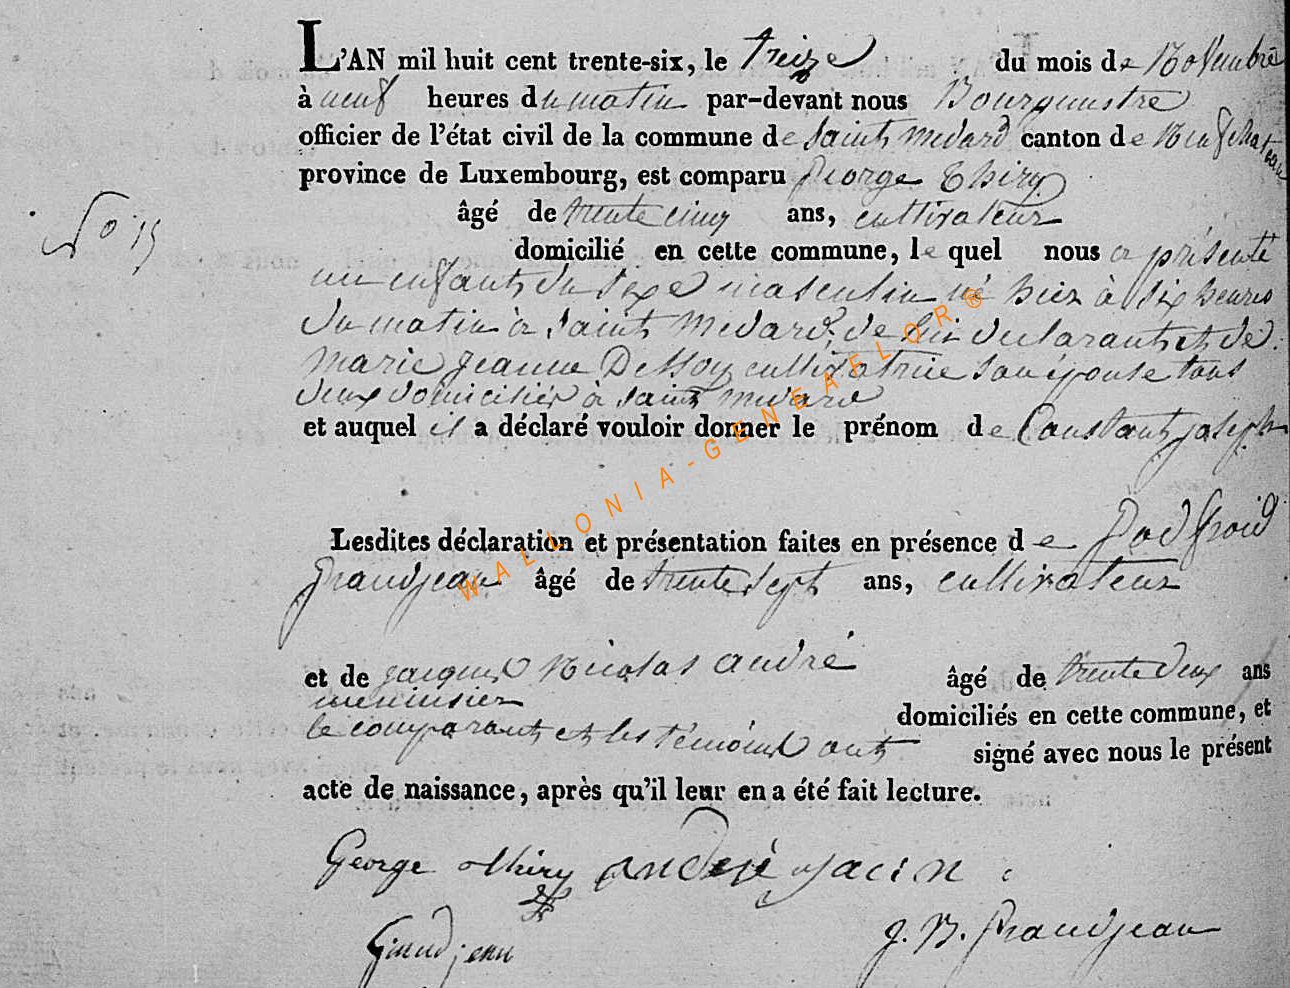 L'AN mil huit cent trente-six, le treize du mois de Novembre
à neuf heures du matin par-devant nous Bourgmestre
officier de l'état civil de la commune de Saint Medard canton de Neufchateau
province de Luxembourg, est comparu George Thiry
N° 15
âgé de trente cinq ans, cultivateur
domicilié en cette commune, le quel nous a présenté
un enfant du sexe masculin né hier à six heures
du matin à Saint Medard, de lui declarant et de
marie jeanne Dessoy cultivatrice son épouse tous
deux domiciliés à Saint Medard
et auquel il a déclaré vouloir donner le prénom de Constant joseph
Lesdites déclaration et présentation faites en présence de Godfroid
Grandjean âgé de trente sept ans, cultivateur
et de jacques Nicolas andré âgé de trente deux ans
menuisier
domiciliés en cette commune, et
le comparant et les témoins ont signé avec nous le présent
acte de naissance, après qu'il leur en a été fait lecture.
George thiry andré
Grandjean
J. N. Grandjean
WALLONIA-GENEAFLOR®